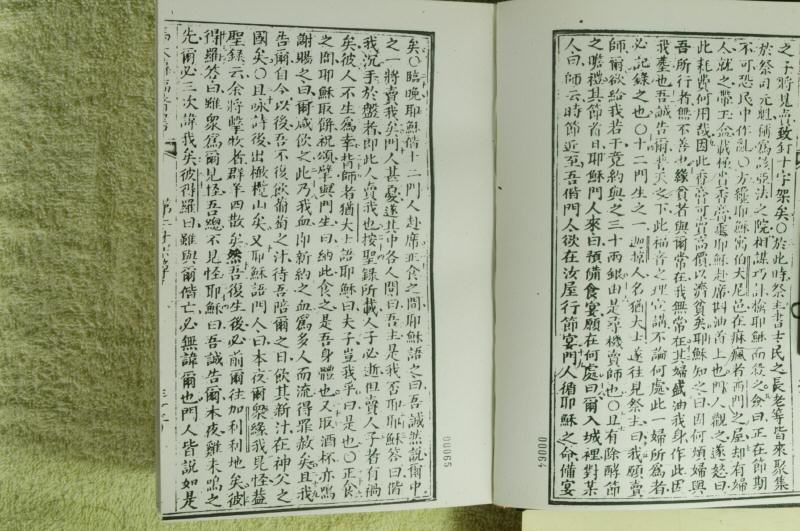 之子將見卖致釘十字架矣〇於此時祭主書士民之長老等皆來聚集
於祭司元魁稱為該亞法之院相謀巧計擒耶穌而殺之僉曰正在節期
不可恐民中作亂〇方纔耶穌寓伯大尼邑在痳瘋者西門之屋却有婦
人就之帶玉盒載極貴香膏處耶穌赴席斟油首上也門人觀之遂怒曰
此耗費何用哉因此香膏可賣高價以濟貧矣耶穌知之曰因何煩婦與
吾所行者無不善也緣貧者與爾常在我無常在其婦盛油我身作此因
我墓也吾誠告爾普天之下此福音之理宣講不論何處此一婦所為者
必記錄之也〇十二門生之一迦掠人名猶大士遂往見祭主曰我願賣
師爾欲給我若干竟約與之三十兩銀由是尋機賣師也〇且有除酵節
之瞻禮其節首日耶穌門人來曰預備食宴願在何處曰爾入城裡對某
人曰師云時節近至吾偕門人欲在汝屋行節宴門人循耶穌之命備宴
00064
矣〇臨晚耶穌偕十二門人赴席正食之間耶穌語之曰吾誠然說爾中
之一將賣我矣門人甚憂遂其中各人問曰吾主是我否耶耶穌答曰偕
我沉手於盤者即此人賣我也按聖錄所載人子必逝但賣人子者有禍
矣彼人不生為幸背師者猶大士語耶穌曰夫子豈我乎曰是也〇正食
之間耶穌取餅祝頌擘與門生曰納此食之是吾身體也又取酒杯亦鳴
謝賜之曰爾咸飲之此乃我血即新約之血為多人而流得罪赦矣且我
告爾自今以後吾不復飲葡萄之汁待吾陪爾之日飲其新汁在神父之
國矣〇且咏詩後出橄欖山矣又耶穌語門人曰本夜爾槩緣我見怪蓋
聖錄云余將擊牧者群羊四散矣然吾復生後必前爾往加利利地矣彼
得羅答曰雖眾為爾見怪吾總不見怪耶穌曰吾誠告爾本夜雞未鳴之
先爾必三次諱我矣彼得羅曰雖與爾偕亡必無諱爾也門人皆說如是
00065